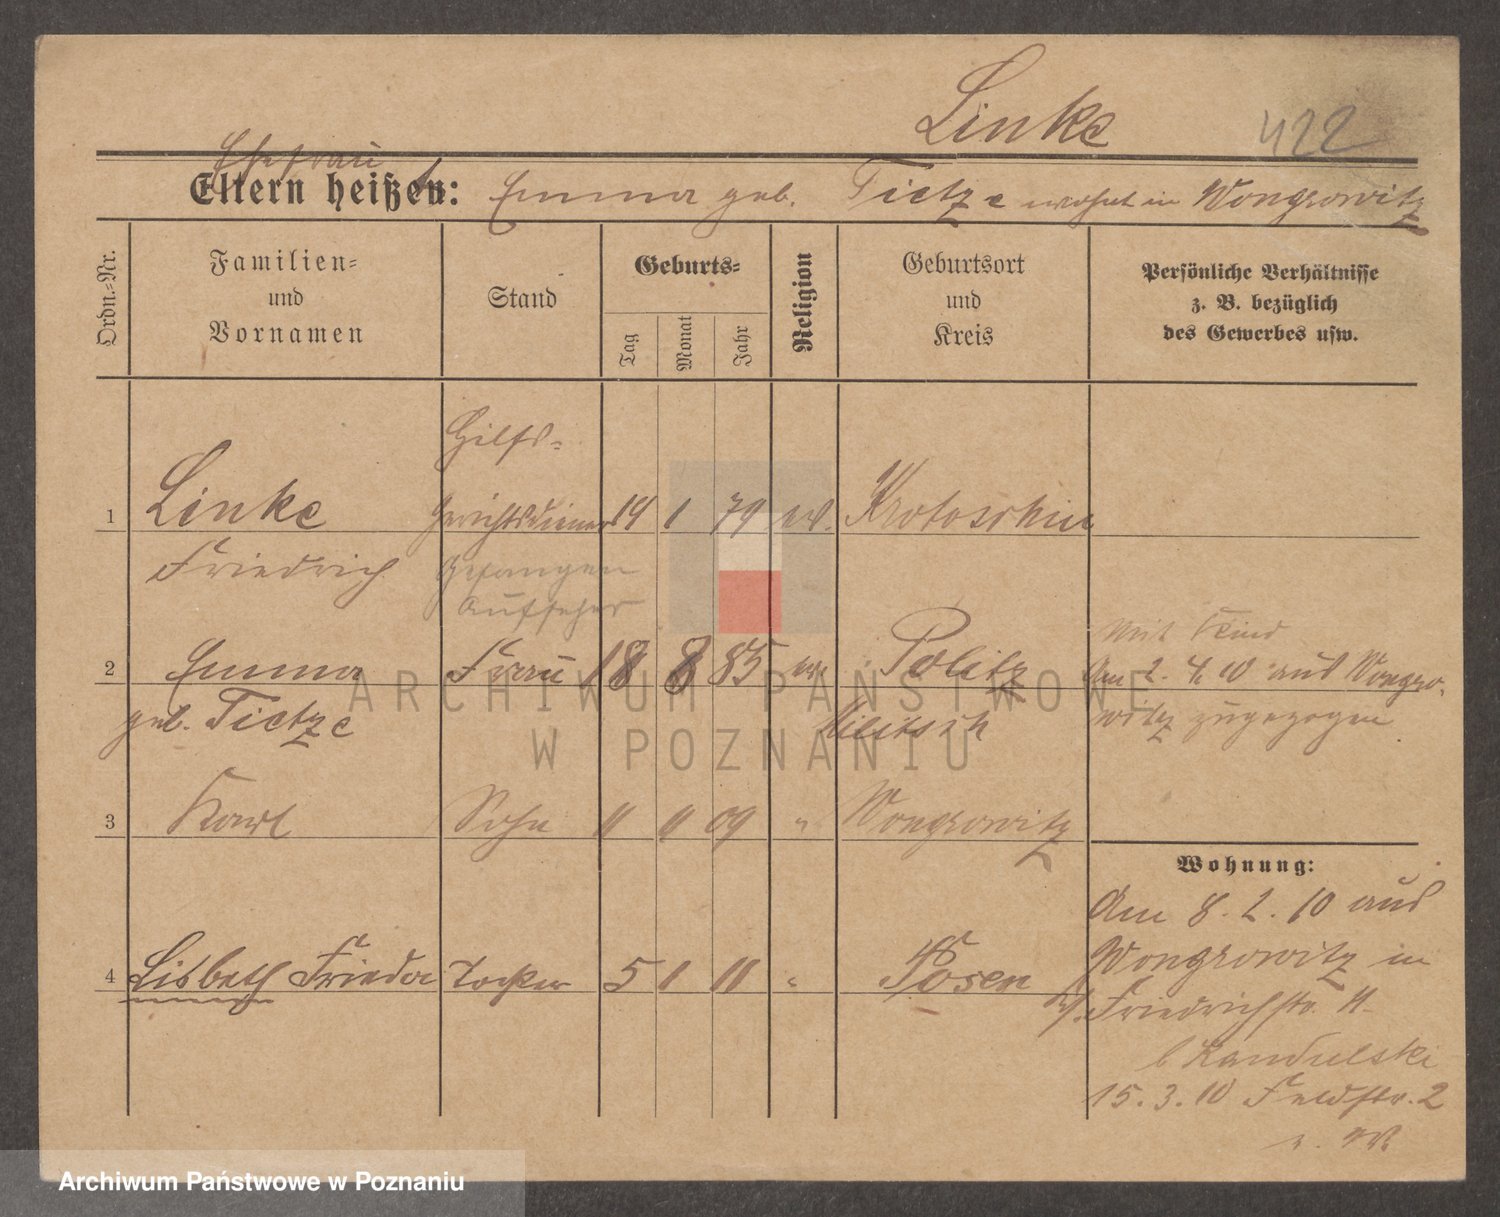 Linke 422
Ehefrau
Eltern heißen: Emma geb. Tietze wohnt in Wongrowitz
Ordn.-Nr.
Familien-
und
Vornamen
Stand
Geburts-
Tag
Monat
Jahr
Religion
Geburtsort
und
Kreis
Persönliche Verhältnisse
z. B. bezüglich
des Gewerbes usw.
Hilfs-
1 Linke Gerichtsdiener 14 1 79 ev. Krotoschin
Friedrich Gefangen
Aufseher
mit Kind
2 Emma Frau 18 8 85 ev. Politz am 2. 4. 10 aus Wongro-
geb. Tietze Militsch witz zugezogen
3 Karl Sohn 11 11 09 " Wongrowitz
Wohnung:
Am 8. 2. 10 aus
Wongrowitz in
4 Lisbeth Frieda Tochter 5 1 11 " Posen
Friedrichstr. 11
b Kandulski
15. 3. 10 Feldstr. 2
ARCHIWUM PAŃSTWOWE
W POZNANIU
Archiwum Państwowe w Poznaniu